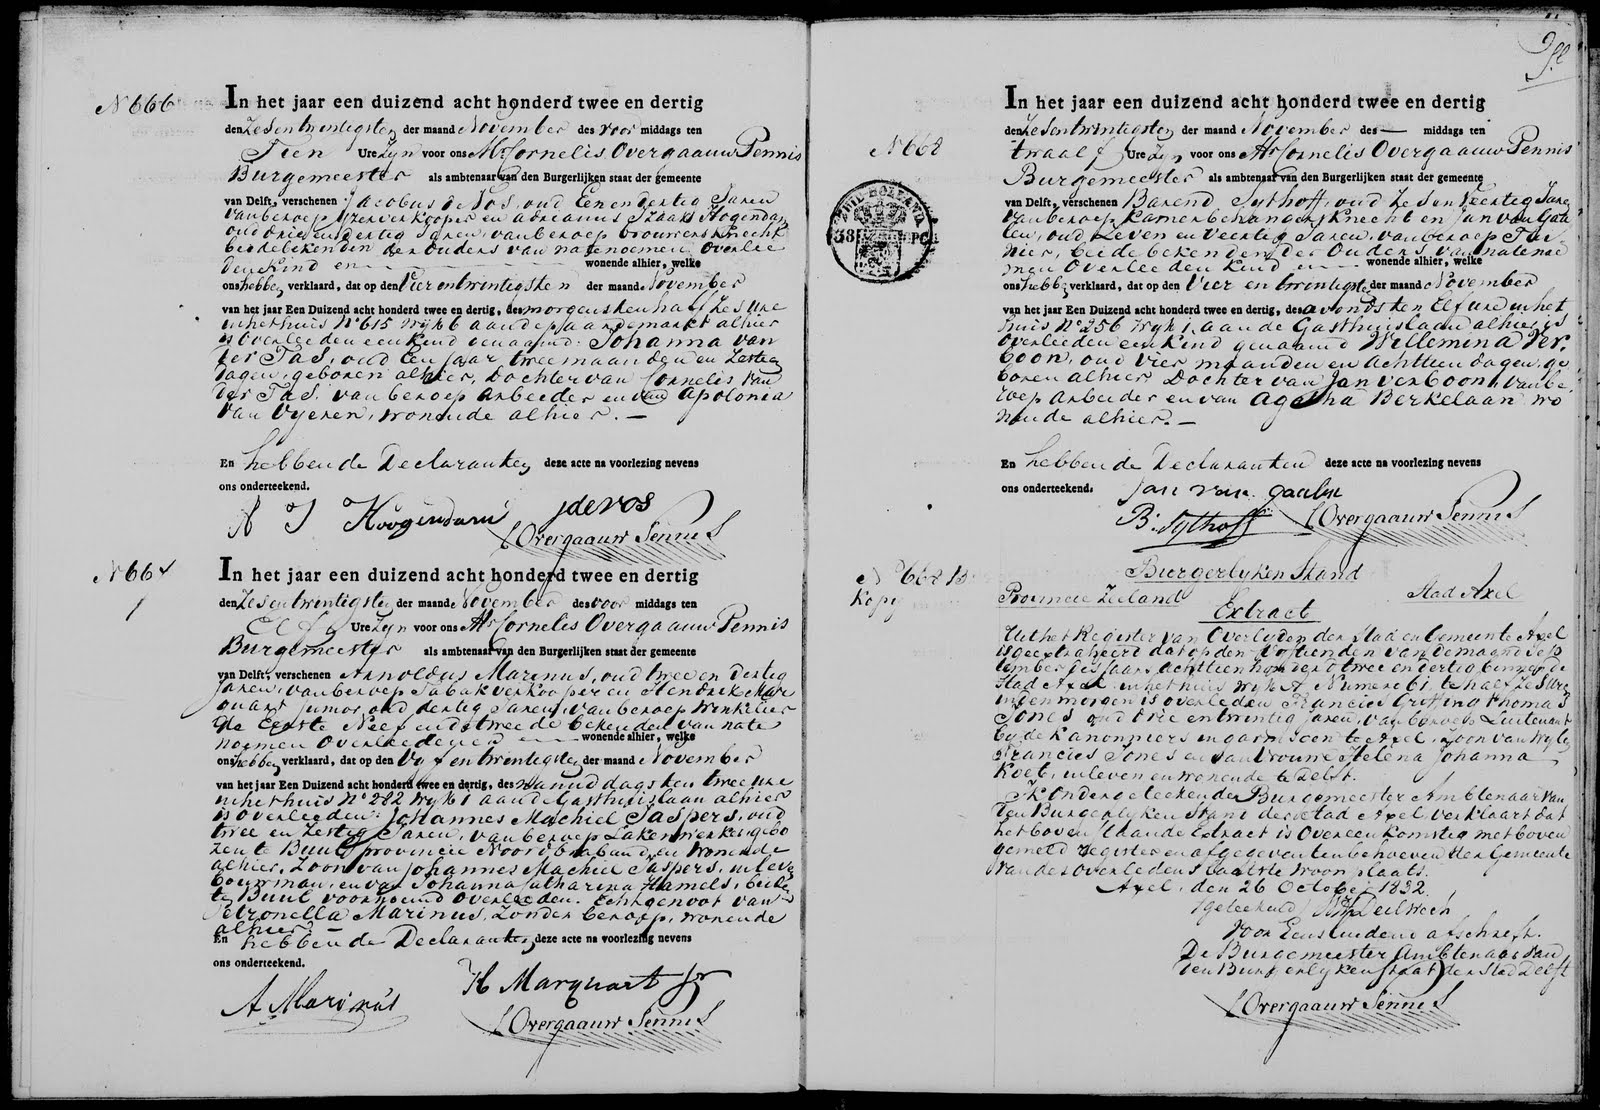 N 666
In het jaar een duizend acht honderd twee en dertig
den Zesentwintigsten der maand November des voor middags ten
Tien Ure Zyn voor ons Mr Cornelis Overgaauw Pennis
Burgemeester als ambtenaar van den Burgerlijken staat der gemeente
van Delft, verschenen Jacobus de Vos, oud Eenendertig Jaren
van beroep Yzerverkooper en Adrianus Izaak Hogendam
oud drie en dertig Jaren, van beroep brouwersknecht
beide bekenden der ouders van natenoemen overlee
den Kind en wonende alhier, welke
ons hebben verklaard, dat op den Vierentwintigsten der maand November
van het jaar Een Duizend acht honderd twee en dertig, des morgens ten half Zes ure
in het huis No 615 Wyk 6 aan de paardemarkt alhier
is overleeden een kind genaamd: Johanna van
der Tas, oud Een jaar twee maanden en Zestien
dagen, geboren alhier, Dochter van Cornelis van
der Tas, van beroep Arbeider en van Apolonia
van Vyeren, wonende alhier. —
En hebben de Declaranten deze acte na voorlezing nevens
ons onderteekend.
A I Hoogendam J de Vos
C Overgaauw Pennis
N 667
In het jaar een duizend acht honderd twee en dertig
den Zesentwintigsten der maand November des voor middags ten
Elf Ure Zyn voor ons Mr Cornelis Overgaauw Pennis
Burgemeester als ambtenaar van den Burgerlijken staat der gemeente
van Delft, verschenen Arnoldus Marinus, oud twee en dertig
Jaren, van beroep Tabakverkooper en Hendrik Mar
quart Junior, oud dertig Jaren, van beroep Winkelier
de Eerste Neef en de tweede bekende van nate
noemen Overleedenen wonende alhier, welke
ons hebben verklaard, dat op den Vyfentwintigsten der maand November
van het jaar Een Duizend acht honderd twee en dertig, des namiddags ten twee ure
in het huis No 282 Wyk 1 aan de Gasthuislaan alhier
is overleeden: Johannes Machiel Jaspers, oud
twee en Zestig Jaren, van beroep Lakenwerker, gebo
ren te Buul provincie Noordbraband en wonende
alhier, Zoon van Johannes Machiel Jaspers, in leven
bouwman, en van Johanna Catharina Hamels, beide
te Buul voornoemd Overleeden. Echtgenoot van
Petronella Marinus, Zonder beroep, wonende
alhier —
En hebben de Declaranten deze acte na voorlezing nevens
ons onderteekend.
A. Marinus H Marquart Jr
C Overgaauw Pennis
N 668
ZUID-HOLLAND
38 PCt
In het jaar een duizend acht honderd twee en dertig
den Zesentwintigsten der maand November des — middags ten
twaalf Ure Zyn voor ons Mr Cornelis Overgaauw Pennis
Burgemeester als ambtenaar van den Burgerlijken staat der gemeente
van Delft, verschenen Barend Sythoff, oud Zes en Veertig Jaren
van beroep Kamerbehangersknecht en Jan van Gaa
len, oud Zeven en Veertig Jaren, van beroep Tui
nier, beide bekenden der Ouders van natenoe
men Overleeden Kind en wonende alhier, welke
ons hebben verklaard, dat op den Vier en twintigsten der maand November
van het jaar Een Duizend acht honderd twee en dertig, des avonds ten Elf ure in het
huis No 256 Wyk 1, aan de Gasthuislaan alhier is
overleeden een kind genaamd Willemina Ver
boon, oud vier maanden en achttien dagen, ge
boren alhier Dochter van Jan Verboon, van be
roep Arbeider en van Agatha Berkelaan wo
nende alhier. —
En hebben de Declaranten deze acte na voorlezing nevens
ons onderteekend.
Jan van gaalen
B. Sythoff C Overgaauw Pennis
N 668 B
Kopy
Burgerlyken Stand
Provincie Zeeland Stad Axel
Extract
Uit het Register van Overlyden der Stad en Gemeente Axel
is geextraheerd dat op den Vyftienden van de maand Sep
tember des Jaars achttien honderd twee en dertig binnen de
Stad Axel in het huis Wyk A Numero 61 te half Zes ure
in den morgen is overleden Francies Griffing Thomas
Jones oud drie en twintig Jaren, van beroep Luitenant
by de Kanonniers in garnisoen te Axel, Zoon van wylen
Francies Jones en van Vrouwe Helena Johanna
Koeb, in leven en wonende te Delft.
Ik Ondergeteekende Burgemeester Ambtenaar van
den Burgerlyken Stand der Stad Axel, verklaart dat
het boven staande Extract is Overeenkomstig met boven
gemeld register en afgegeven ten behoeve der Gemeente
van des overledens laatste woonplaats.
Axel, den 26 October 1832.
(geteekend)
Voor Eensluidend afschrift.
De Burgemeester Ambtenaar van
den Burgerlyken Staat der Stad Delft
C Overgaauw Pennis